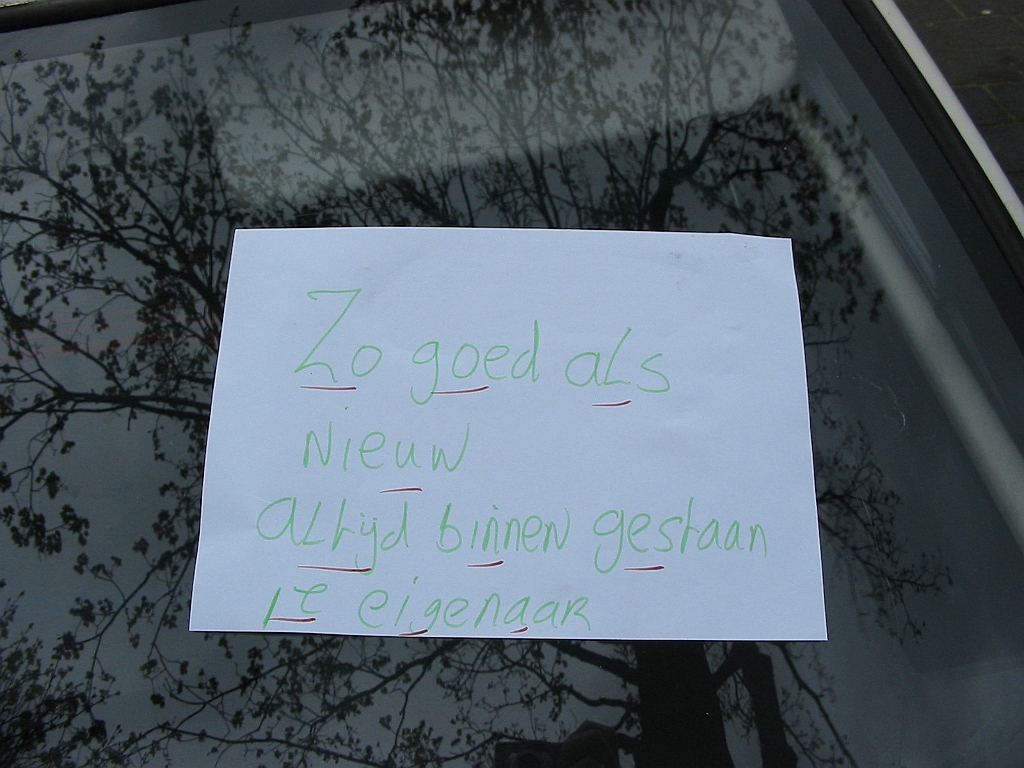 Zo goed als
Nieuw
altijd binnen gestaan
1e eigenaar